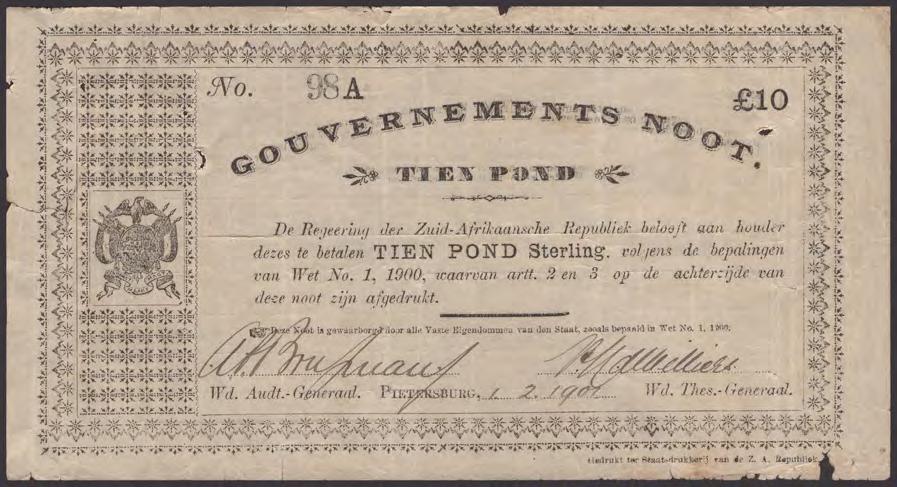 No. 98 A
£10
GOUVERNEMENTS NOOT.
TIEN POND
De Regeering der Zuid-Afrikaansche Republiek belooft aan houder
dezes te betalen TIEN POND Sterling, volgens de bepalingen
van Wet No. 1, 1900, waarvan artt. 2 en 3 op de achterzijde van
deze noot zijn afgedrukt.
Deze Noot is gewaarborgd door alle Vaste Eigendommen van den Staat, zooals bepaald in Wet No. 1, 1900.
Wd. Audt.-Generaal. PIETERSBURG, 1. 2. 1901 Wd. Thes.-Generaal.
Gedrukt ter Staatsdrukkerij van de Z. A. Republiek.